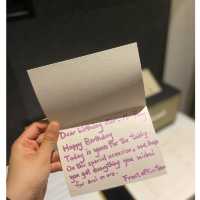 Dear birthday
Happy Birthday
Today is yours for the
On this special occasion, We hope
you get everything you wished
for and more.
From,